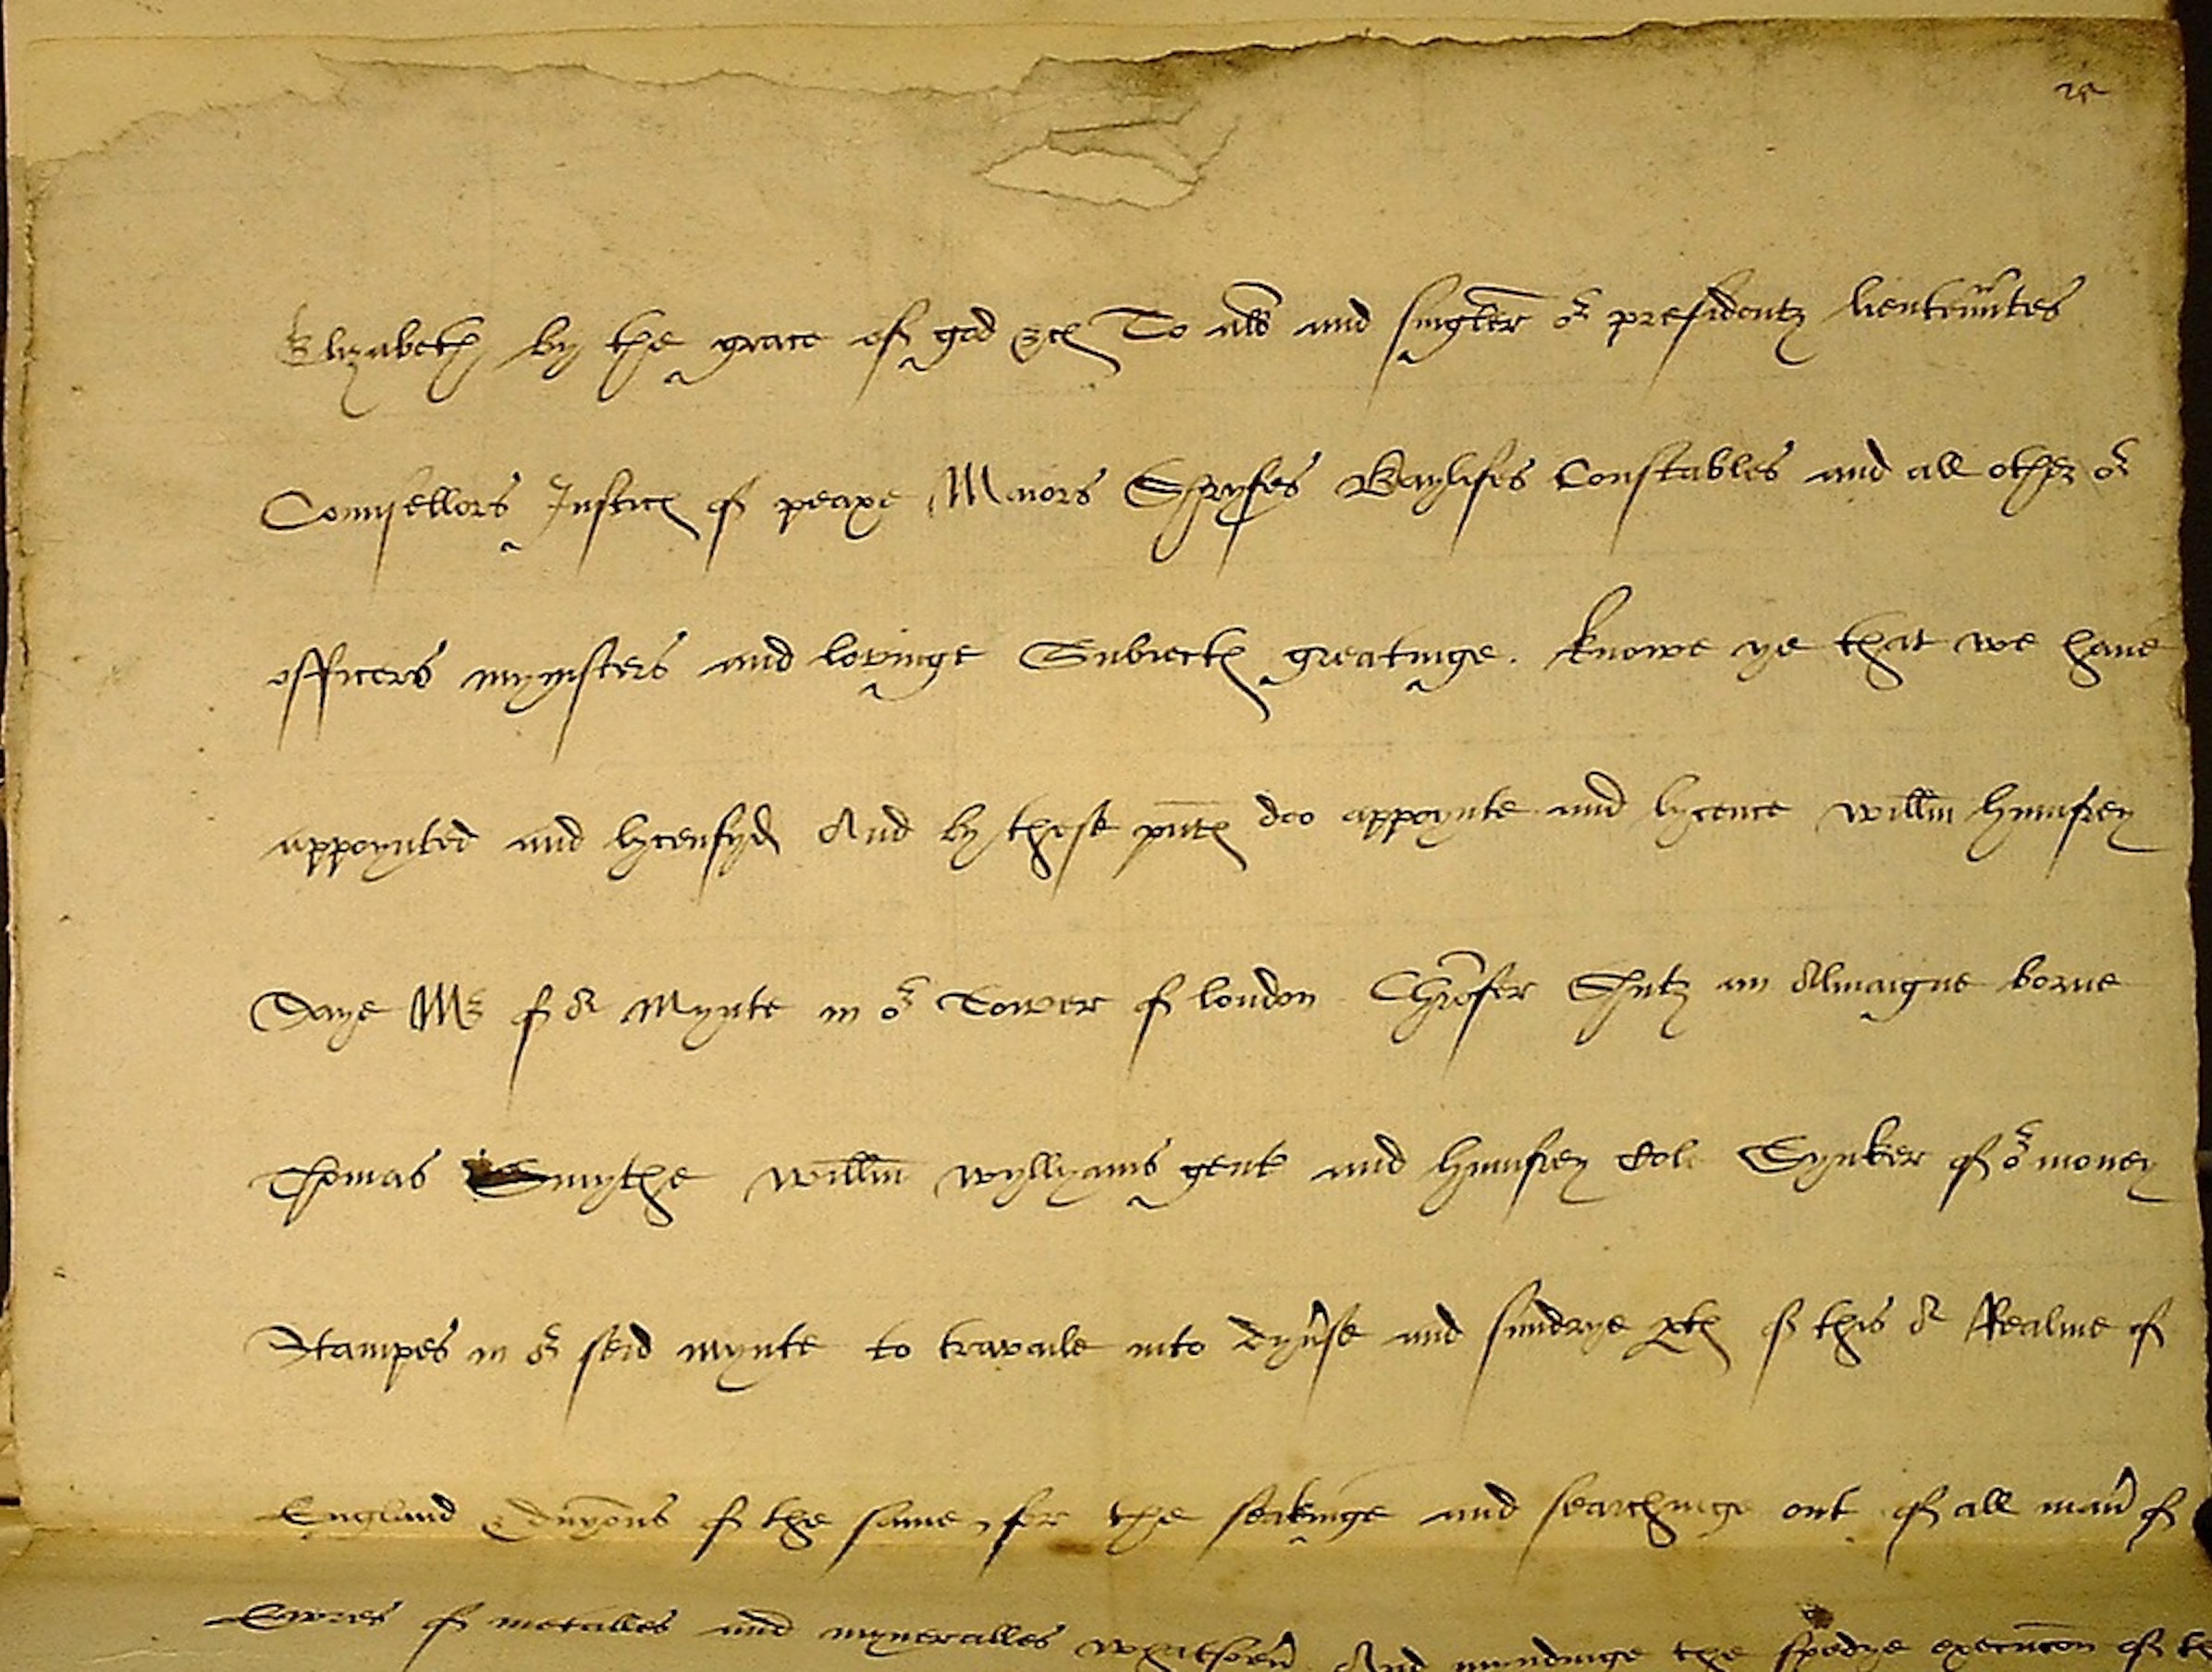 Elizabeth by the grace of god &c To all and singler or presidentz lieuten͞ntes
Counsellors Justic℮ of peaxe Maiors Shryfes Baylifes Constables and all other or
officers mynisters and lovinge Subiect℮ greatinge. Knowe ye that we haue
appoynted and lycensyd And by these pnt℮ doo appoynte and lycence Willm̄ Humfrey
Saye Mr of or Mynte in or Tower of london Chrofer Shutz an Almaigne borne
Thomas Smythe Willm̄ Wyllyams gent and Humfrey Cole Synker of or money
Stampes in or seid mynte to travaile into dyu'se and sundrye pt℮ of this or Realme of
England & dny͞ons of the same, for the seakinge and searchinge out of all man' of
Ewres of metalles and myneralles whatsoeu' And myndinge the spedye execuc͞on of